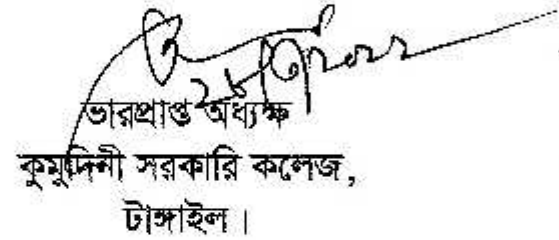 ভারপ্রাপ্ত অধ্যক্ষ
কুমুদিনী সরকারি কলেজ,
টাঙ্গাইল।